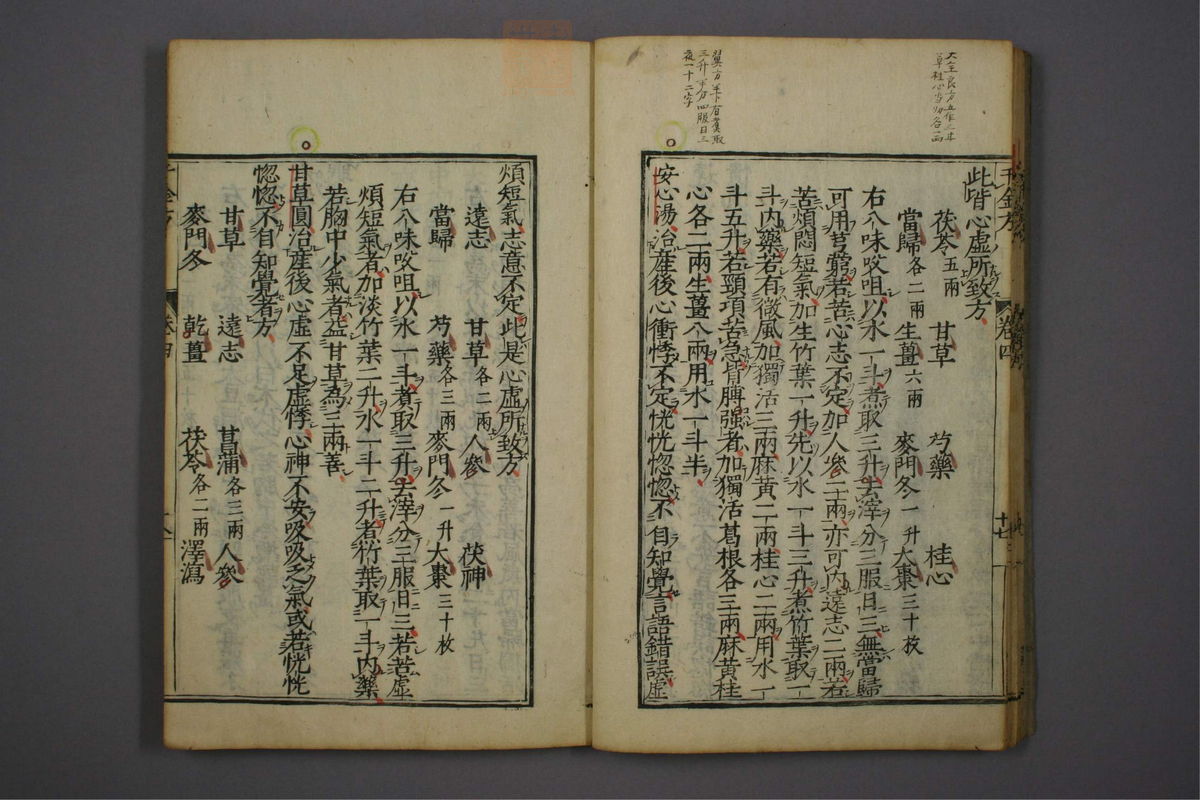 此皆心虛所致方
茯苓五兩 甘草 芍藥 桂心
當歸各二兩 生薑六兩 麥門冬一升 大棗三十枚
右八味㕮咀以水一斗煮取三升去滓分三服日三無當歸
可用芎藭若苦心志不定加人參二兩亦可內遠志二兩若
苦煩悶短氣加生竹葉一升先以水一斗三升煮竹葉取一
斗內藥若有微風加獨活三兩麻黃二兩桂心二兩用水一
斗五升若頸項苦急背膊强者加獨活葛根各三兩麻黃桂
心各二兩生薑八兩用水一斗半
安心湯治產後心衝悸不定恍恍惚惚不自知覺言語錯誤虛
煩短氣志意不定此是心虛所致方
遠志 甘草各二兩 人參 茯神
當歸 芍藥各三兩 麥門冬一升 大棗三十枚
右八味㕮咀以水一斗煮取三升去滓分三服日三若苦虛
煩短氣者加淡竹葉二升水一斗二升煮竹葉取一斗內藥
若胸中少氣者益甘草為三兩善
甘草圓治產後心虛不足虛悸心神不安吸吸乏氣或若恍恍
惚惚不自知覺者方
甘草 遠志 菖蒲各三兩 人參
麥門冬 乾薑 茯苓各二兩 澤瀉
千金方
卷四
十七
翼方半下有煮取
三升半分四服日三
夜一十二字